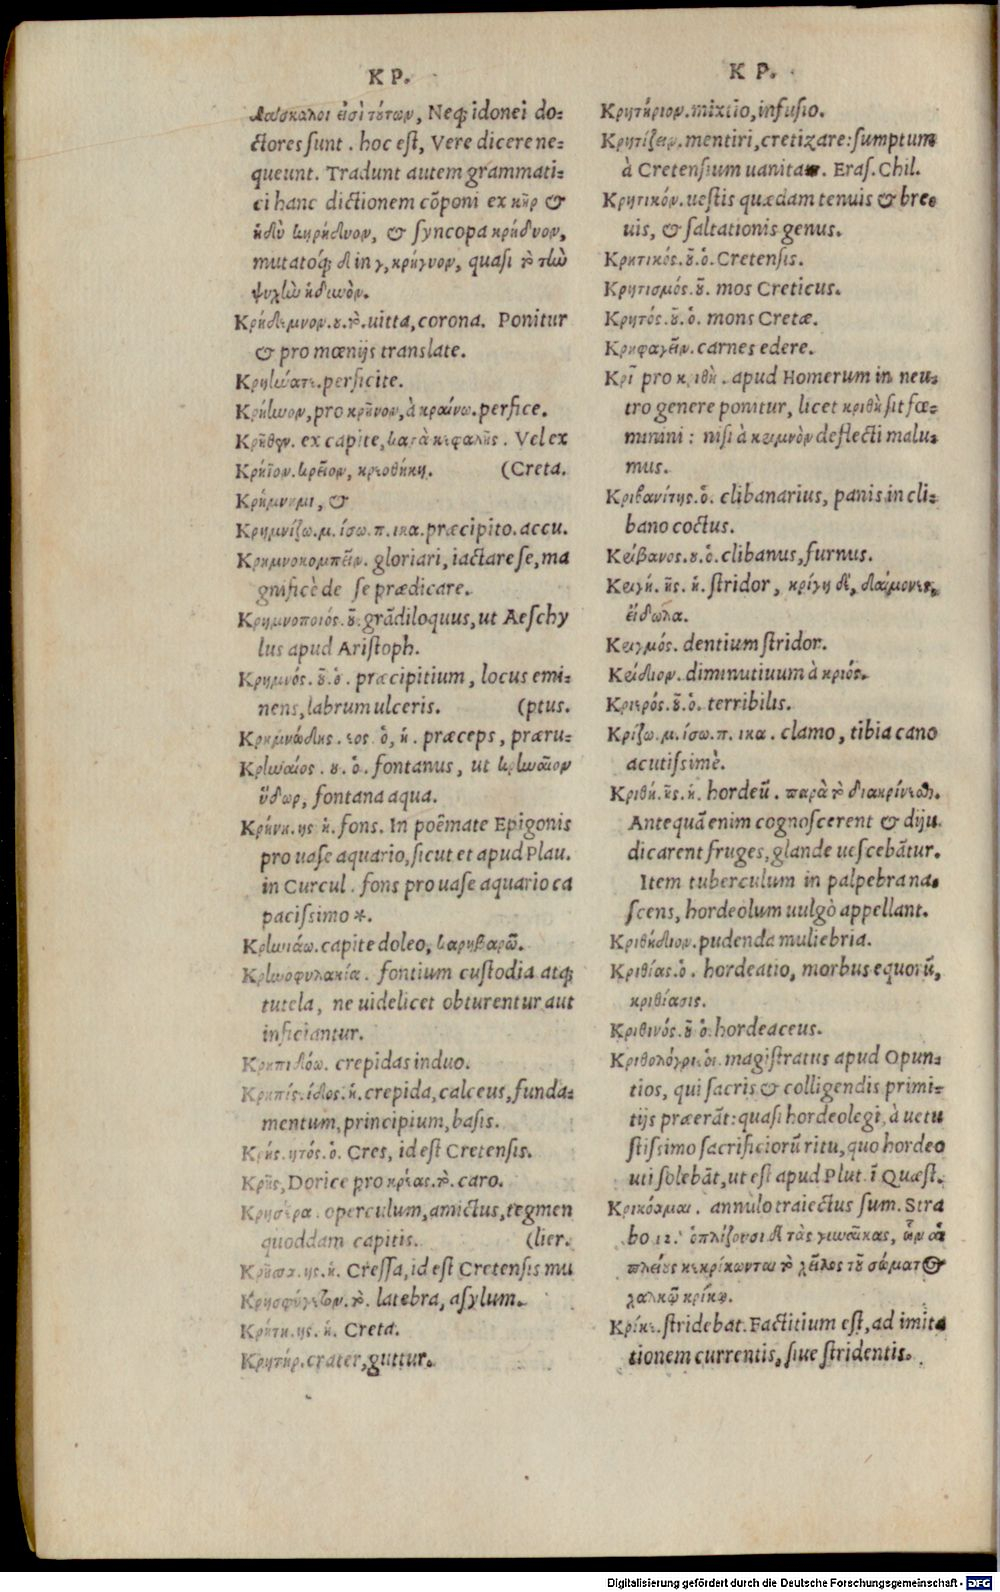 Κ Ρ.
δάσκαλοι εἰσὶ τούτων, Neq; idonei do-
ctores sunt. hoc est, Vere dicere ne-
queunt. Tradunt autem grammati-
ci hanc dictionem cõponi ex κῆρ &
ἡδὺ κηρήδυον, & syncopa κρήδυον,
mutatóq; δ in γ, κρήγυον, quasi τὸ τὴν
ψυχὴν ἡδυνὸν.
Κρήδεμνον.ου.τὸ.uitta, corona. Ponitur
& pro mœnijs translate.
Κρηήνατε.perficite.
Κρήηνον, pro κρῆνον, à κραίνω.perfice.
Κρῆθεν. ex capite, κατὰ κεφαλῆς. Vel ex
Κρήϊον.κρεῖον, κρεοθήκη. (Creta.
Κρήμνημι, &
Κρημνίζω.μ.ίσω.π.ικα.præcipito.accu.
Κρημνοκομπεῖν. gloriari, iactare se, ma
gnificè de se prædicare.
Κρημνοποιός.οῦ.grãdiloquus, ut Aeschy
lus apud Aristoph.
Κρημνός.οῦ.ὁ. præcipitium, locus emi-
nens, labrum ulceris. (ptus.
Κρημνώδης.εος ὁ, ἡ. præceps, præru-
Κρηναῖος.ου.ὁ. fontanus, ut κρηναῖον
ὕδωρ, fontana aqua.
Κρήνη.ης ἡ. fons. In poëmate Epigonis
pro uase aquario, sicut et apud Plau.
in Curcul. fons pro uase aquario ca
pacissimo *.
Κρηνιάω.capite doleo, καρηβαρῶ.
Κρηνοφυλακία. fontium custodia atq;
tutela, ne uidelicet obturentur aut
inficiantur.
Κρηπιδόω. crepidas induo.
Κρηπίς.ίδος.ἡ.crepida, calceus, funda-
mentum, principium, basis.
Κρής.ητός.ὁ. Cres, id est Cretensis.
Κρῆς, Dorice pro κρέας.τὸ. caro.
Κρησέρα. operculum, amictus, tegmen
quoddam capitis. (lier.
Κρῆσσα.ης.ἡ. Cressa, id est Cretensis mu
Κρησφύγετον.τὸ. latebra, asylum.
Κρήτη.ης.ἡ. Creta.
Κρητήρ.crater, guttur.
Κ Ρ.
Κρητήριον.mixtio, infusio.
Κρητίζειν.mentiri, cretizare: sumptum
à Cretensium uanitate. Eras. Chil.
Κρητικόν.uestis quædam tenuis & bre
uis, & saltationis genus.
Κρητικός.οῦ.ὁ.Cretensis.
Κρητισμός.οῦ. mos Creticus.
Κρητός.οῦ.ὁ. mons Cretæ.
Κρηφαγεῖν. carnes edere.
Κρῖ pro κριθὴ. apud Homerum in neu-
tro genere ponitur, licet κριθὴ sit fœ-
minini: nisi à κριμνὸν deflecti malu-
mus.
Κριβανίτης.ὁ. clibanarius, panis in cli-
bano coctus.
Κρίβανος.ου.ὁ.clibanus, furnus.
Κριγή.ῆς.ἡ. stridor, κρίγη δὲ, δαίμονες,
εἴδωλα.
Κριγμός. dentium stridor.
Κρίδιον. diminutiuum à κριός.
Κριερός.οῦ.ὁ. terribilis.
Κρίζω.μ.ίσω.π.ικα. clamo, tibia cano
acutissimè.
Κριθή.ῆς.ἡ. hordeũ. παρὰ τὸ διακρίνεσθ.
Antequã enim cognoscerent & diju
dicarent fruges, glande uescebãtur.
Item tuberculum in palpebra na-
scens, hordeolum uulgò appellant.
Κριθήδιον.pudenda muliebria.
Κριθίας.ὁ. hordeatio, morbus equorũ,
κριθίασις.
Κριθινός.οῦ ὁ.hordeaceus.
Κριθολόγοι.οἱ. magistratus apud Opun-
tios, qui sacris & colligendis primi-
tijs præerãt: quasi hordeolegi, à uetu
stissimo sacrificiorũ ritu, quo hordeo
uti solebãt, ut est apud Plut. ĩ Quæst.
Κρικόομαι. annulo traiectus sum. Stra
bo 12. ὁπλίζουσι δὲ τὰς γυναῖκας, ὧν αἱ
πλείους κεκρίκωνται τὸ χεῖλος τοῦ σώματος
χαλκῷ κρίκῳ.
Κρίκε.stridebat. Factitium est, ad imita
tionem currentis, siue stridentis.
Digitalisierung gefördert durch die Deutsche Forschungsgemeinschaft - DFG